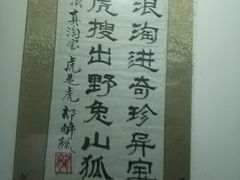 浪淘进奇珍异宝
虎搜出野兔山狐
真淘宝虎是虎